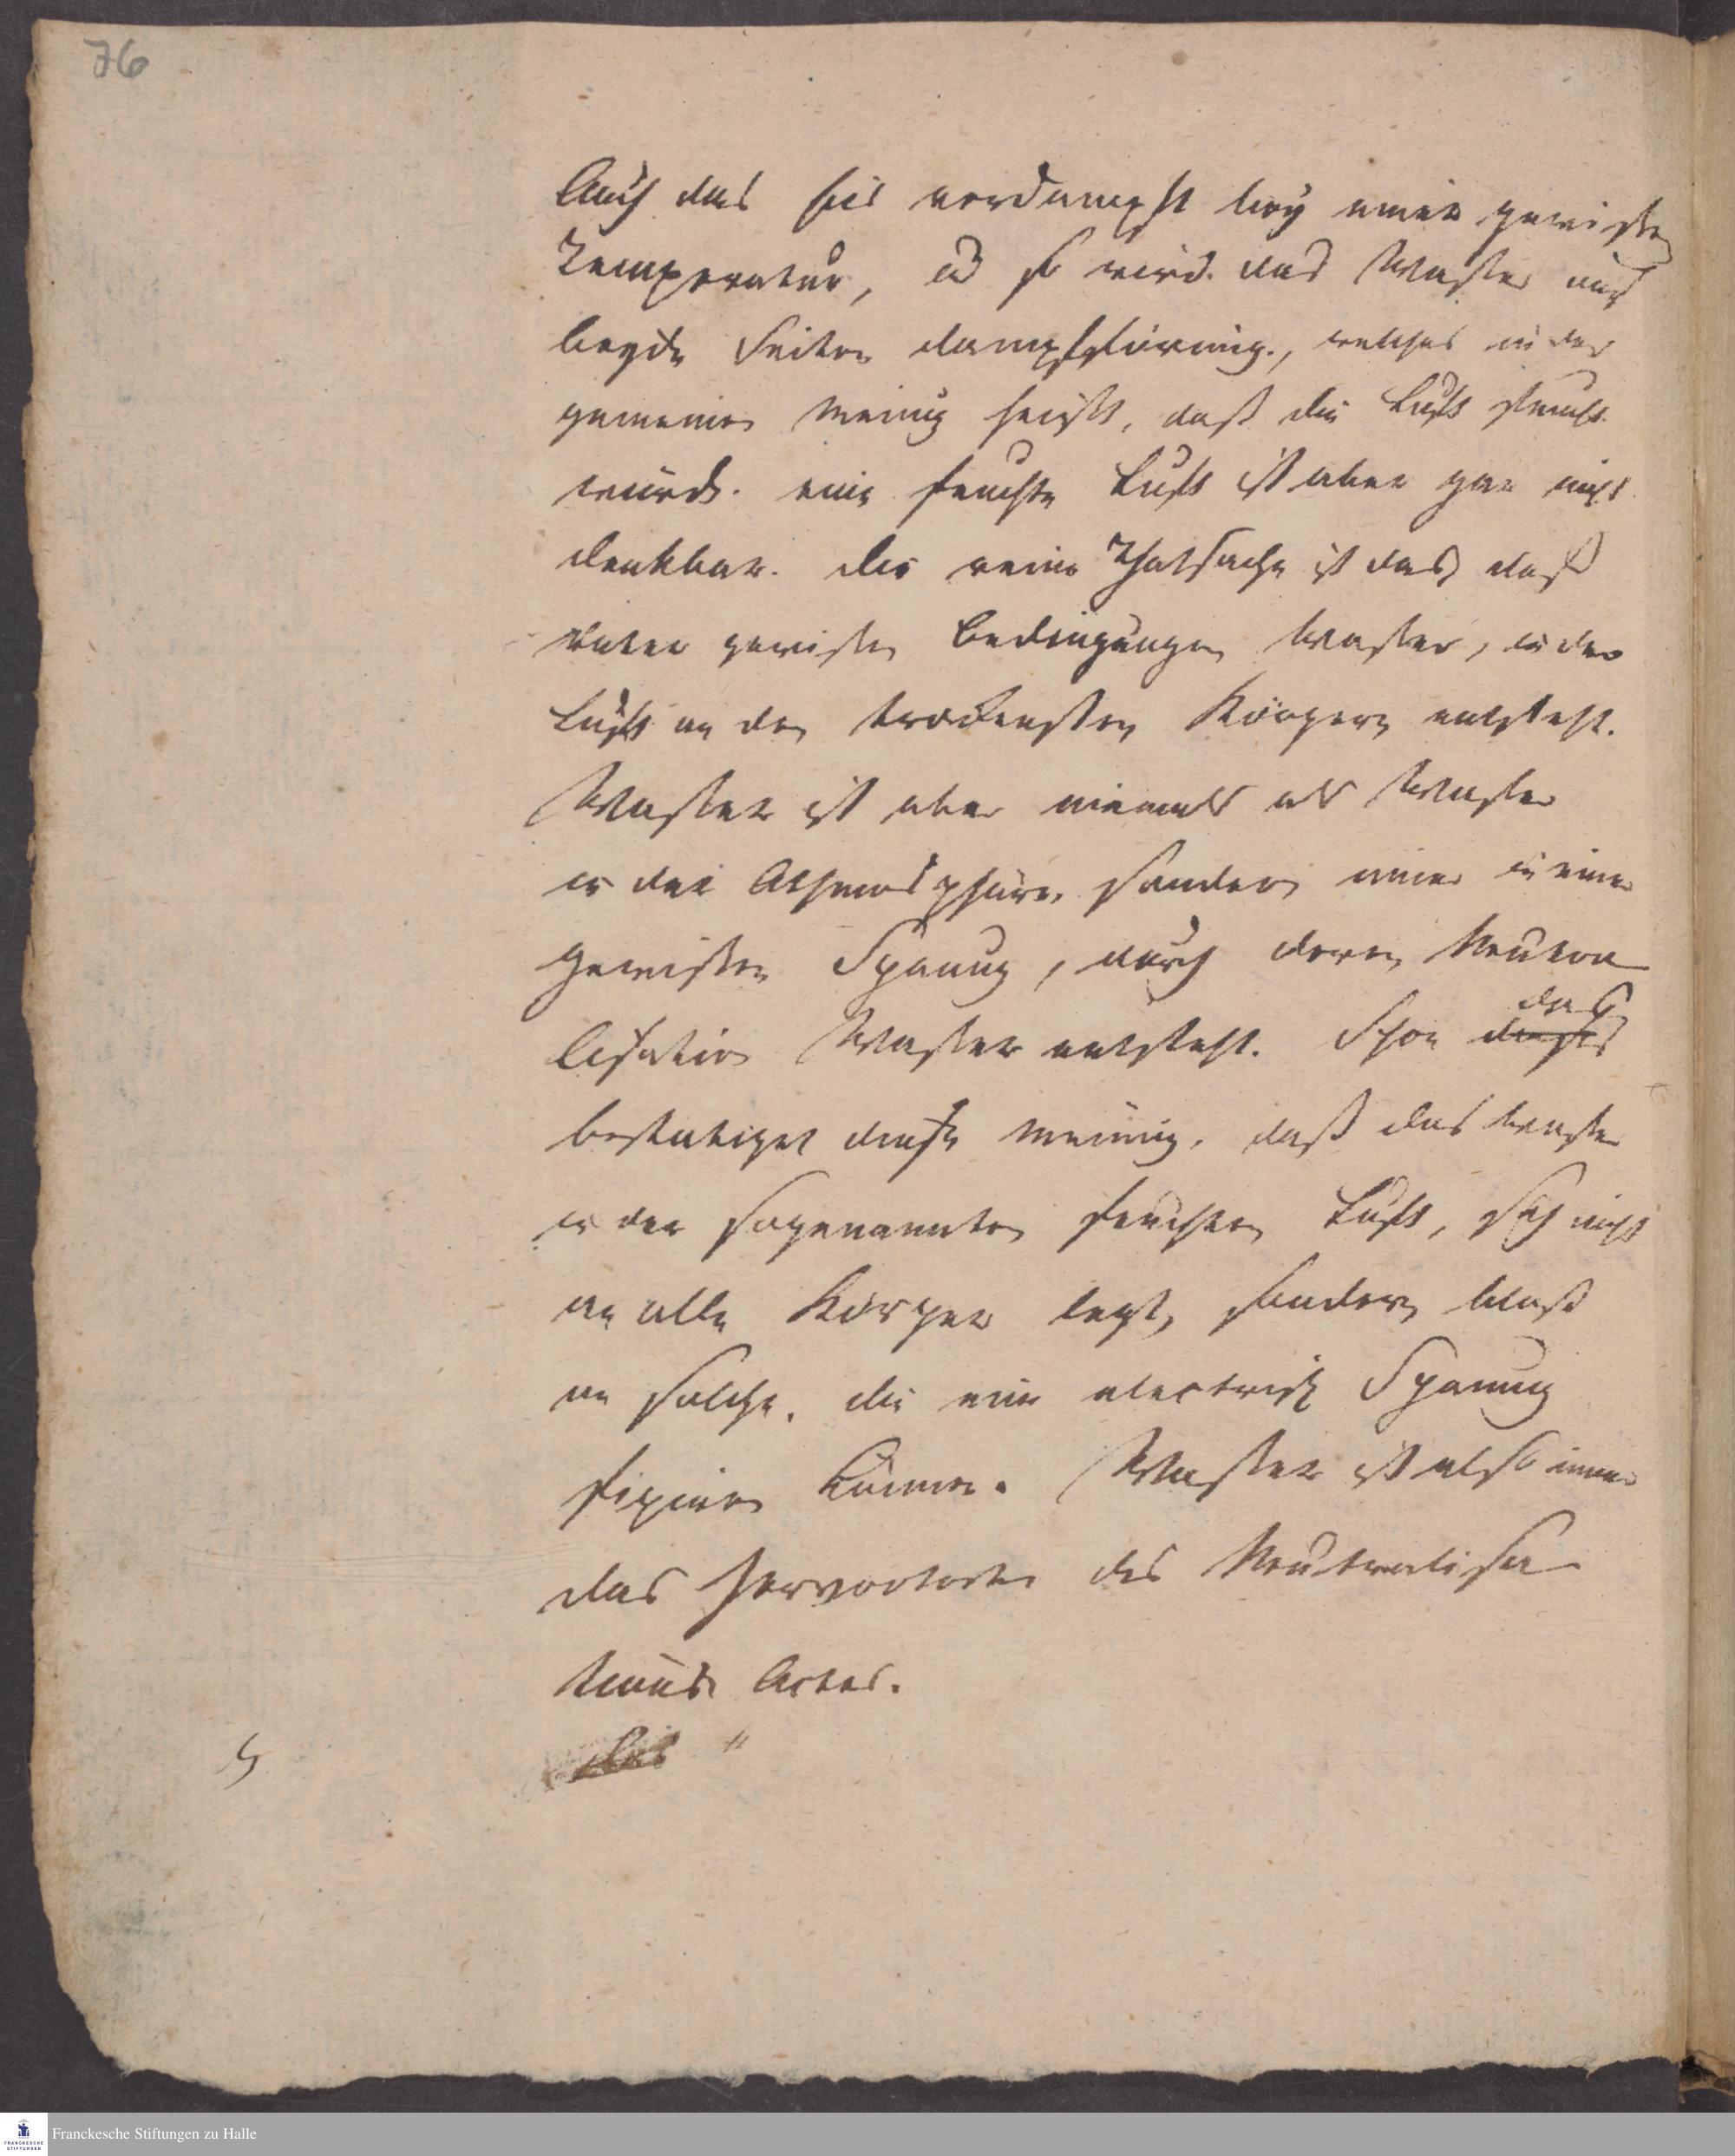 76
Auch das Eis verdampft bey einer gewissen
Temperatur, u so wird das Wasser nach
beyden Seiten dampfförmig, welches in der
gemeinen Meinung heißt, daß die Luft feucht
würde. eine feuchte Luft ist aber gar nicht
denkbar. die reine Thatsache ist das, daß
unter gewissen Bedingungen Wasser, in der
Luft an den trockensten Körpern entsteht.
Wasser ist aber niemals als Wasser
in der Athmosphäre, sondern immer in einer
gewissen Spanung, durch deren Neutra
lisation Wasser entsteht. Schon
das
bestatiget diese Meinung, daß das Wasser
in der sogenannten feuchten Luft, sich nicht
an alle Körper legt, sondern bloß
an solche, die eine electrische Spanung
fixiren können. Wasser ist also immer
das Hervortreten des Neutralisa
tions Actes.
Franckesche Stiftungen zu Halle
FRANCKESCHE
STIFTUNGEN